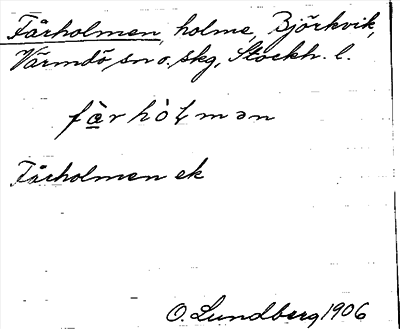 Fårholmen, holme, Björkvik,
Värmdö sn o. skg, Stockh. l.
fà̲r hòɫmən
Fårholmen ek
O. Lundberg 1906